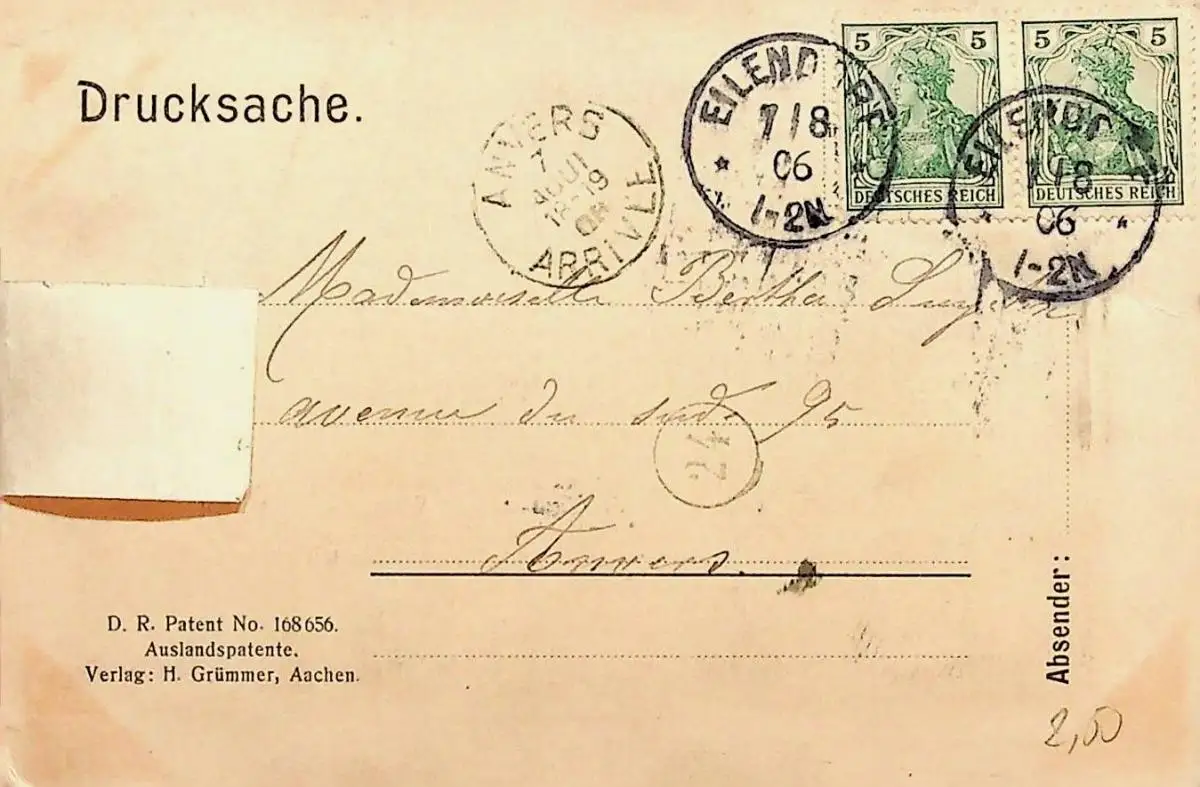 Drucksache.
5 5
5 5
DEUTSCHES REICH
DEUTSCHES REICH
EILENDORF
7/8
06
1-2N
EILENDORF
7/8
06
1-2N
ANVERS
7
AOUT
18-19
06
ARRIVÉE
Mademoiselle Bertha
avenue du sud. 95
24
Anvers.
D. R. Patent No. 168656.
Auslandspatente.
Verlag: H. Grümmer, Aachen.
Absender:
2,50